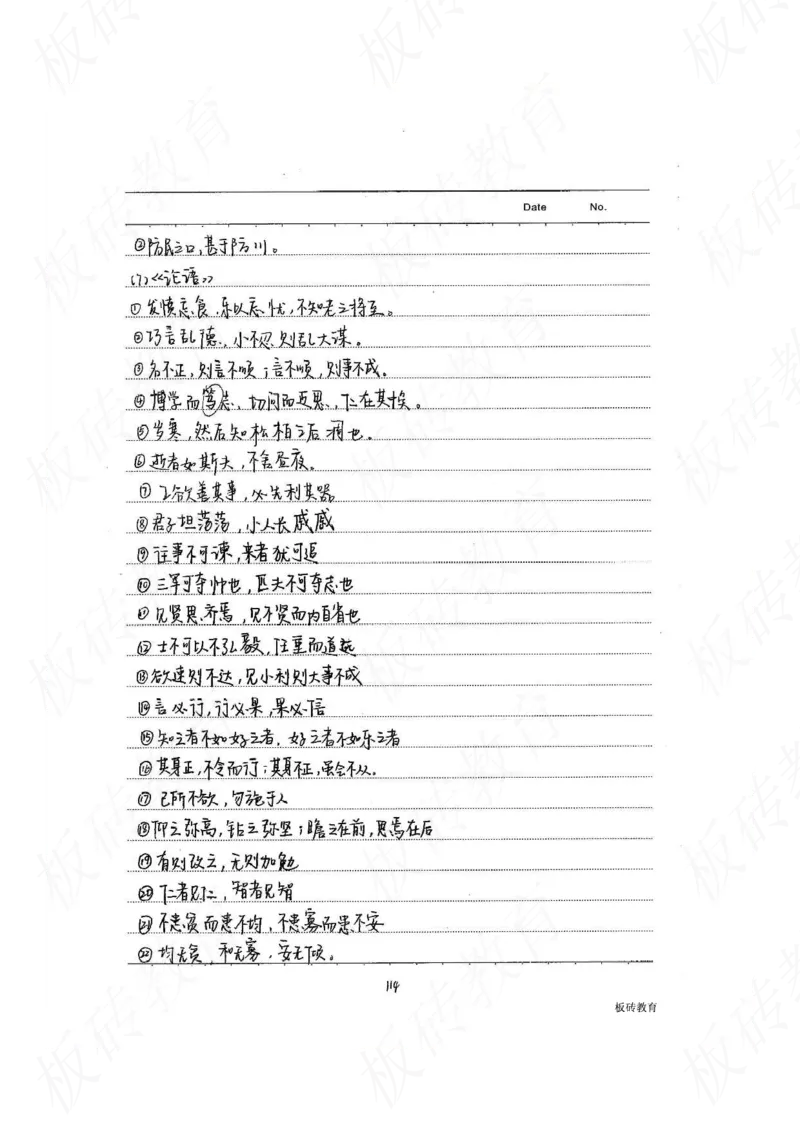 Date No.
②防民之口,甚于防川。
(7)《论语》
①发愤忘食,乐以忘忧,不知老之将至。
②巧言乱德,小不忍则乱大谋。
③名不正,则言不顺;言不顺,则事不成。
④博学而笃志,切问而近思,仁在其矣。
⑤岁寒,然后知松柏之后凋也。
⑥逝者如斯夫,不舍昼夜。
⑦工欲善其事,必先利其器
⑧君子坦荡荡,小人长戚戚
⑨往事不可谏,来者犹可追
⑩三军可夺帅也,匹夫不可夺志也
⑪见贤思齐焉,见不贤而内自省也
⑫士不可以不弘毅,任重而道远
⑬欲速则不达,见小利则大事不成
⑭言必行,行必果,果必信
⑮知之者不如好之者,好之者不如乐之者
⑯其身正,不令而行;其身不正,虽令不从。
⑰己所不欲,勿施于人
⑱仰之弥高,钻之弥坚;瞻之在前,忽焉在后
⑲有则改之,无则加勉
⑳仁者见仁,智者见智
㉑不患贫而患不均,不患寡而患不安
㉒均无贫,和无寡,安无倾。
114
板砖教育